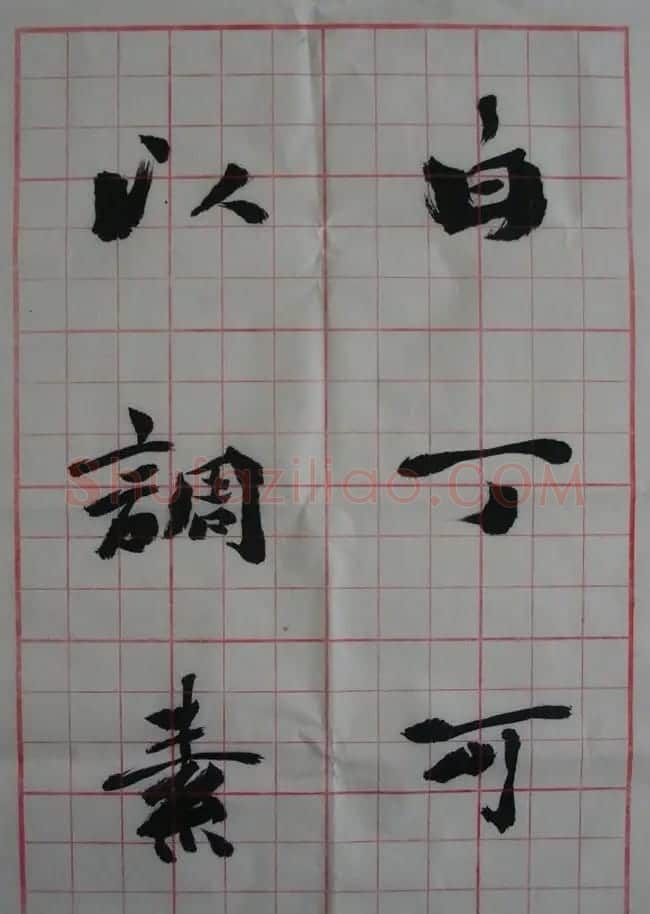 白丁可
以調素
Shufaziliao.COM